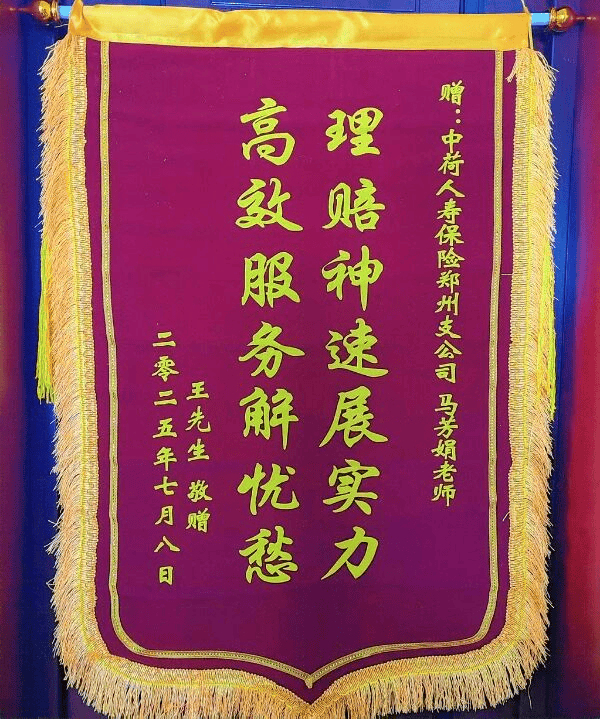 赠：中荷人寿保险郑州支公司 马芳娟老师
理赔神速展实力
高效服务解忧愁
王先生 敬赠
二零二五年七月八日